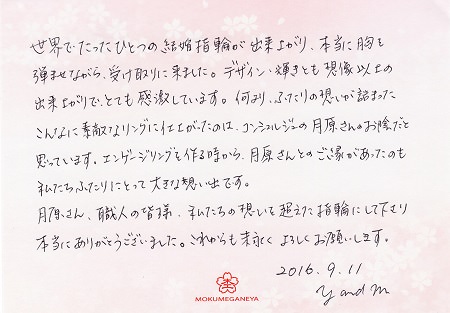 世界でたったひとつの結婚指輪が出来上がり、本当に胸を
弾ませながら、受け取りに来ました。デザイン・輝きとも想像以上の
出来上がりで、とても感激しています。何より、ふたりの想いが詰まった
こんなに素敵なリングに仕上がったのは、コンシェルジュの月原さんのお陰だと
思っています。エンゲージリングを作る時から、月原さんとのご縁があったのも
私たちふたりにとって大きな想い出です。
月原さん、職人の皆様、私たちの想いを超えた指輪にして下さり
本当にありがとうございました。これからも末永くよろしくお願いします。
2016.9.11
Y and M
MOKUMEGANEYA